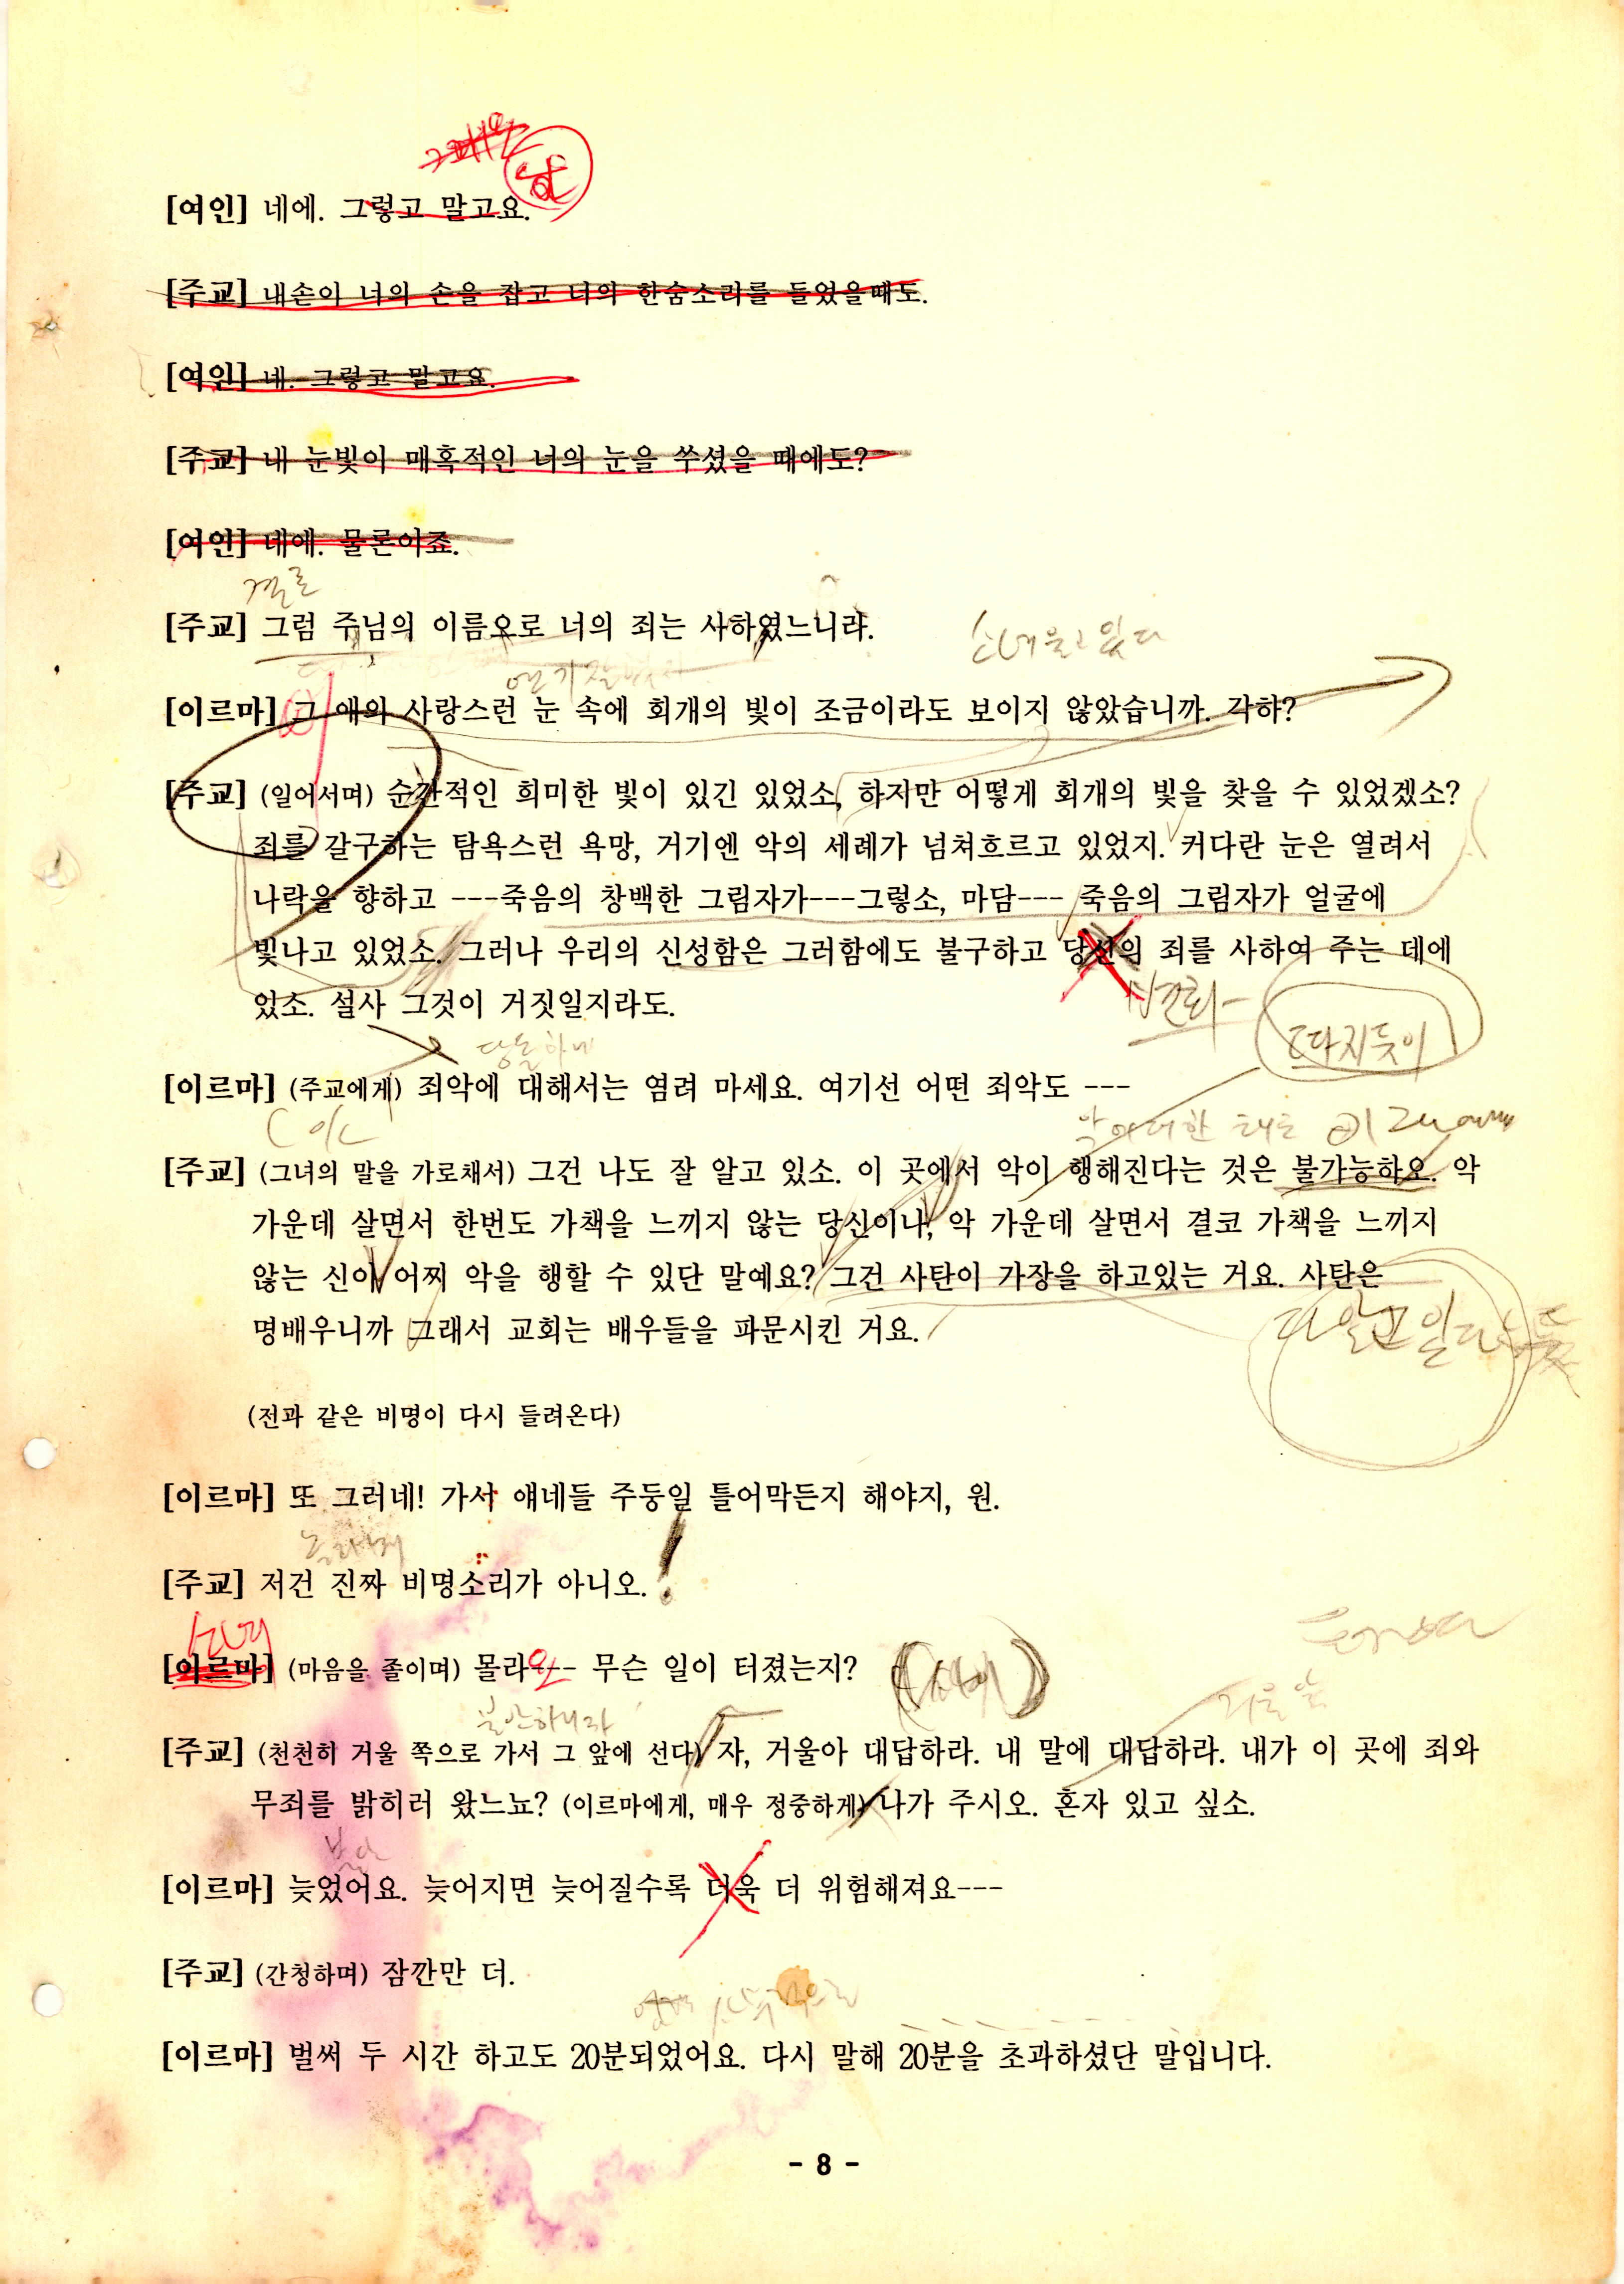 [여인] 네에. 그렇고 말고요.
[주교] 내손이 너의 손을 잡고 너의 한숨소리를 들었을때도.
[여인] 네. 그렇고 말고요.
[주교] 내 눈빛이 매혹적인 너의 눈을 쑤셨을 때에도?
[여인] 네에. 물론이죠.
[주교] 그럼 주님의 이름으로 너의 죄는 사하였느니라.
[이르마] 그 애의 사랑스런 눈 속에 회개의 빛이 조금이라도 보이지 않았습니까. 각하?
[주교] (일어서며) 순간적인 희미한 빛이 있긴 있었소, 하지만 어떻게 회개의 빛을 찾을 수 있었겠소?
죄를 갈구하는 탐욕스런 욕망, 거기엔 악의 세례가 넘쳐흐르고 있었지. 커다란 눈은 열려서
나락을 향하고 ---죽음의 창백한 그림자가---그렇소, 마담--- 죽음의 그림자가 얼굴에
빛나고 있었소. 그러나 우리의 신성함은 그러함에도 불구하고 당신의 죄를 사하여 주는 데에
있소. 설사 그것이 거짓일지라도.
따지듯이
당돌하게
[이르마] (주교에게) 죄악에 대해서는 염려 마세요. 여기선 어떤 죄악도 ---
[주교] (그녀의 말을 가로채서) 그건 나도 잘 알고 있소. 이 곳에서 악이 행해진다는 것은 불가능하오. 악
가운데 살면서 한번도 가책을 느끼지 않는 당신이나, 악 가운데 살면서 결코 가책을 느끼지
않는 신이 어찌 악을 행할 수 있단 말예요? 그건 사탄이 가장을 하고있는 거요. 사탄은
명배우니까 그래서 교회는 배우들을 파문시킨 거요.
다 알고 있다는 듯
(전과 같은 비명이 다시 들려온다)
[이르마] 또 그러네! 가서 얘네들 주둥일 틀어막든지 해야지, 원.
[주교] 저건 진짜 비명소리가 아니오. !
소녀
[이르마] (마음을 졸이며) 몰라요-- 무슨 일이 터졌는지?
불안하니까
거울 앞
[주교] (천천히 거울 쪽으로 가서 그 앞에 선다) 자, 거울아 대답하라. 내 말에 대답하라. 내가 이 곳에 죄와
무죄를 밝히러 왔느뇨? (이르마에게, 매우 정중하게) 나가 주시오. 혼자 있고 싶소.
불안
[이르마] 늦었어요. 늦어지면 늦어질수록 더욱 더 위험해져요---
[주교] (간청하며) 잠깐만 더.
[이르마] 벌써 두 시간 하고도 20분되었어요. 다시 말해 20분을 초과하셨단 말입니다.
- 8 -